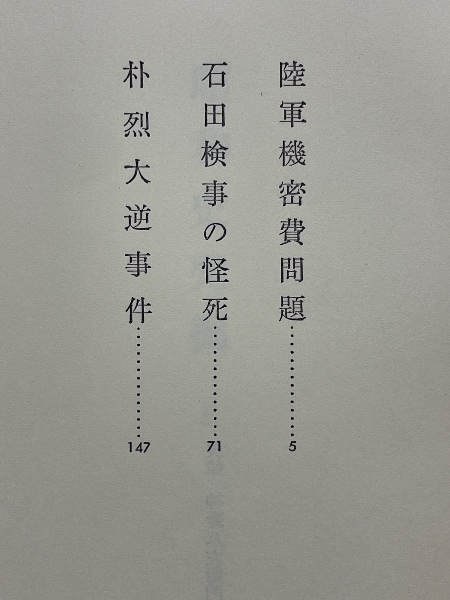 陸軍機密費問題……………5
石田検事の怪死……………71
朴烈大逆事件……………147